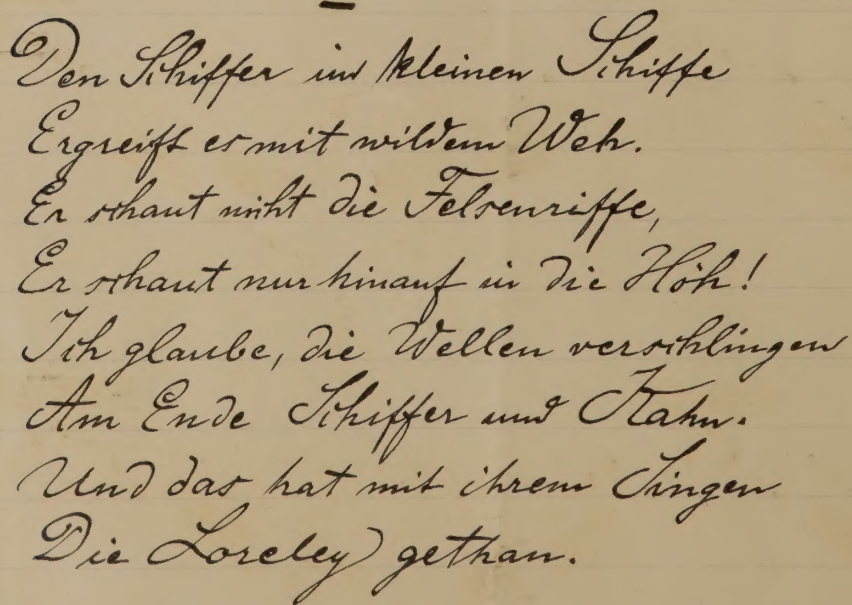 Den Schiffer im kleinen Schiffe
Ergreift es mit wildem Weh.
Er schaut nicht die Felsenriffe,
Er schaut nur hinauf in die Höh!
Ich glaube, die Wellen verschlingen
Am Ende Schiffer und Kahn.
Und das hat mit ihrem Singen
Die Loreley gethan.